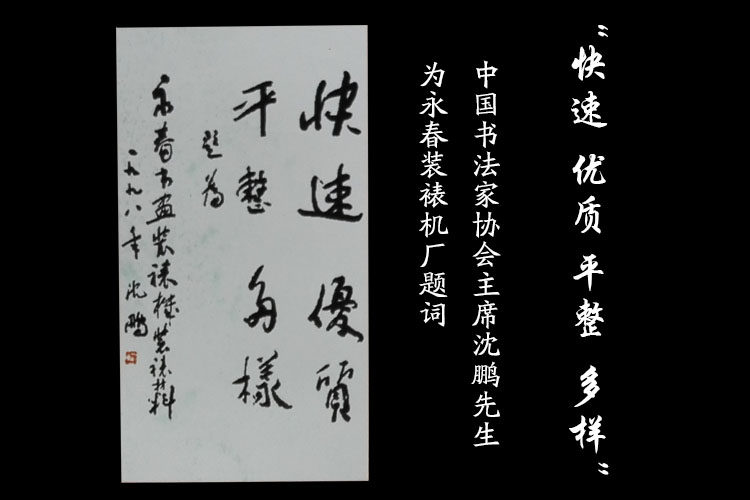 “快速 优质 平整 多样”
中国书法家协会主席沈鹏先生
为永春装裱机厂题词
快速優質
平整多樣
题为
永春书画装裱機装裱材料
一九九八年沈鹏